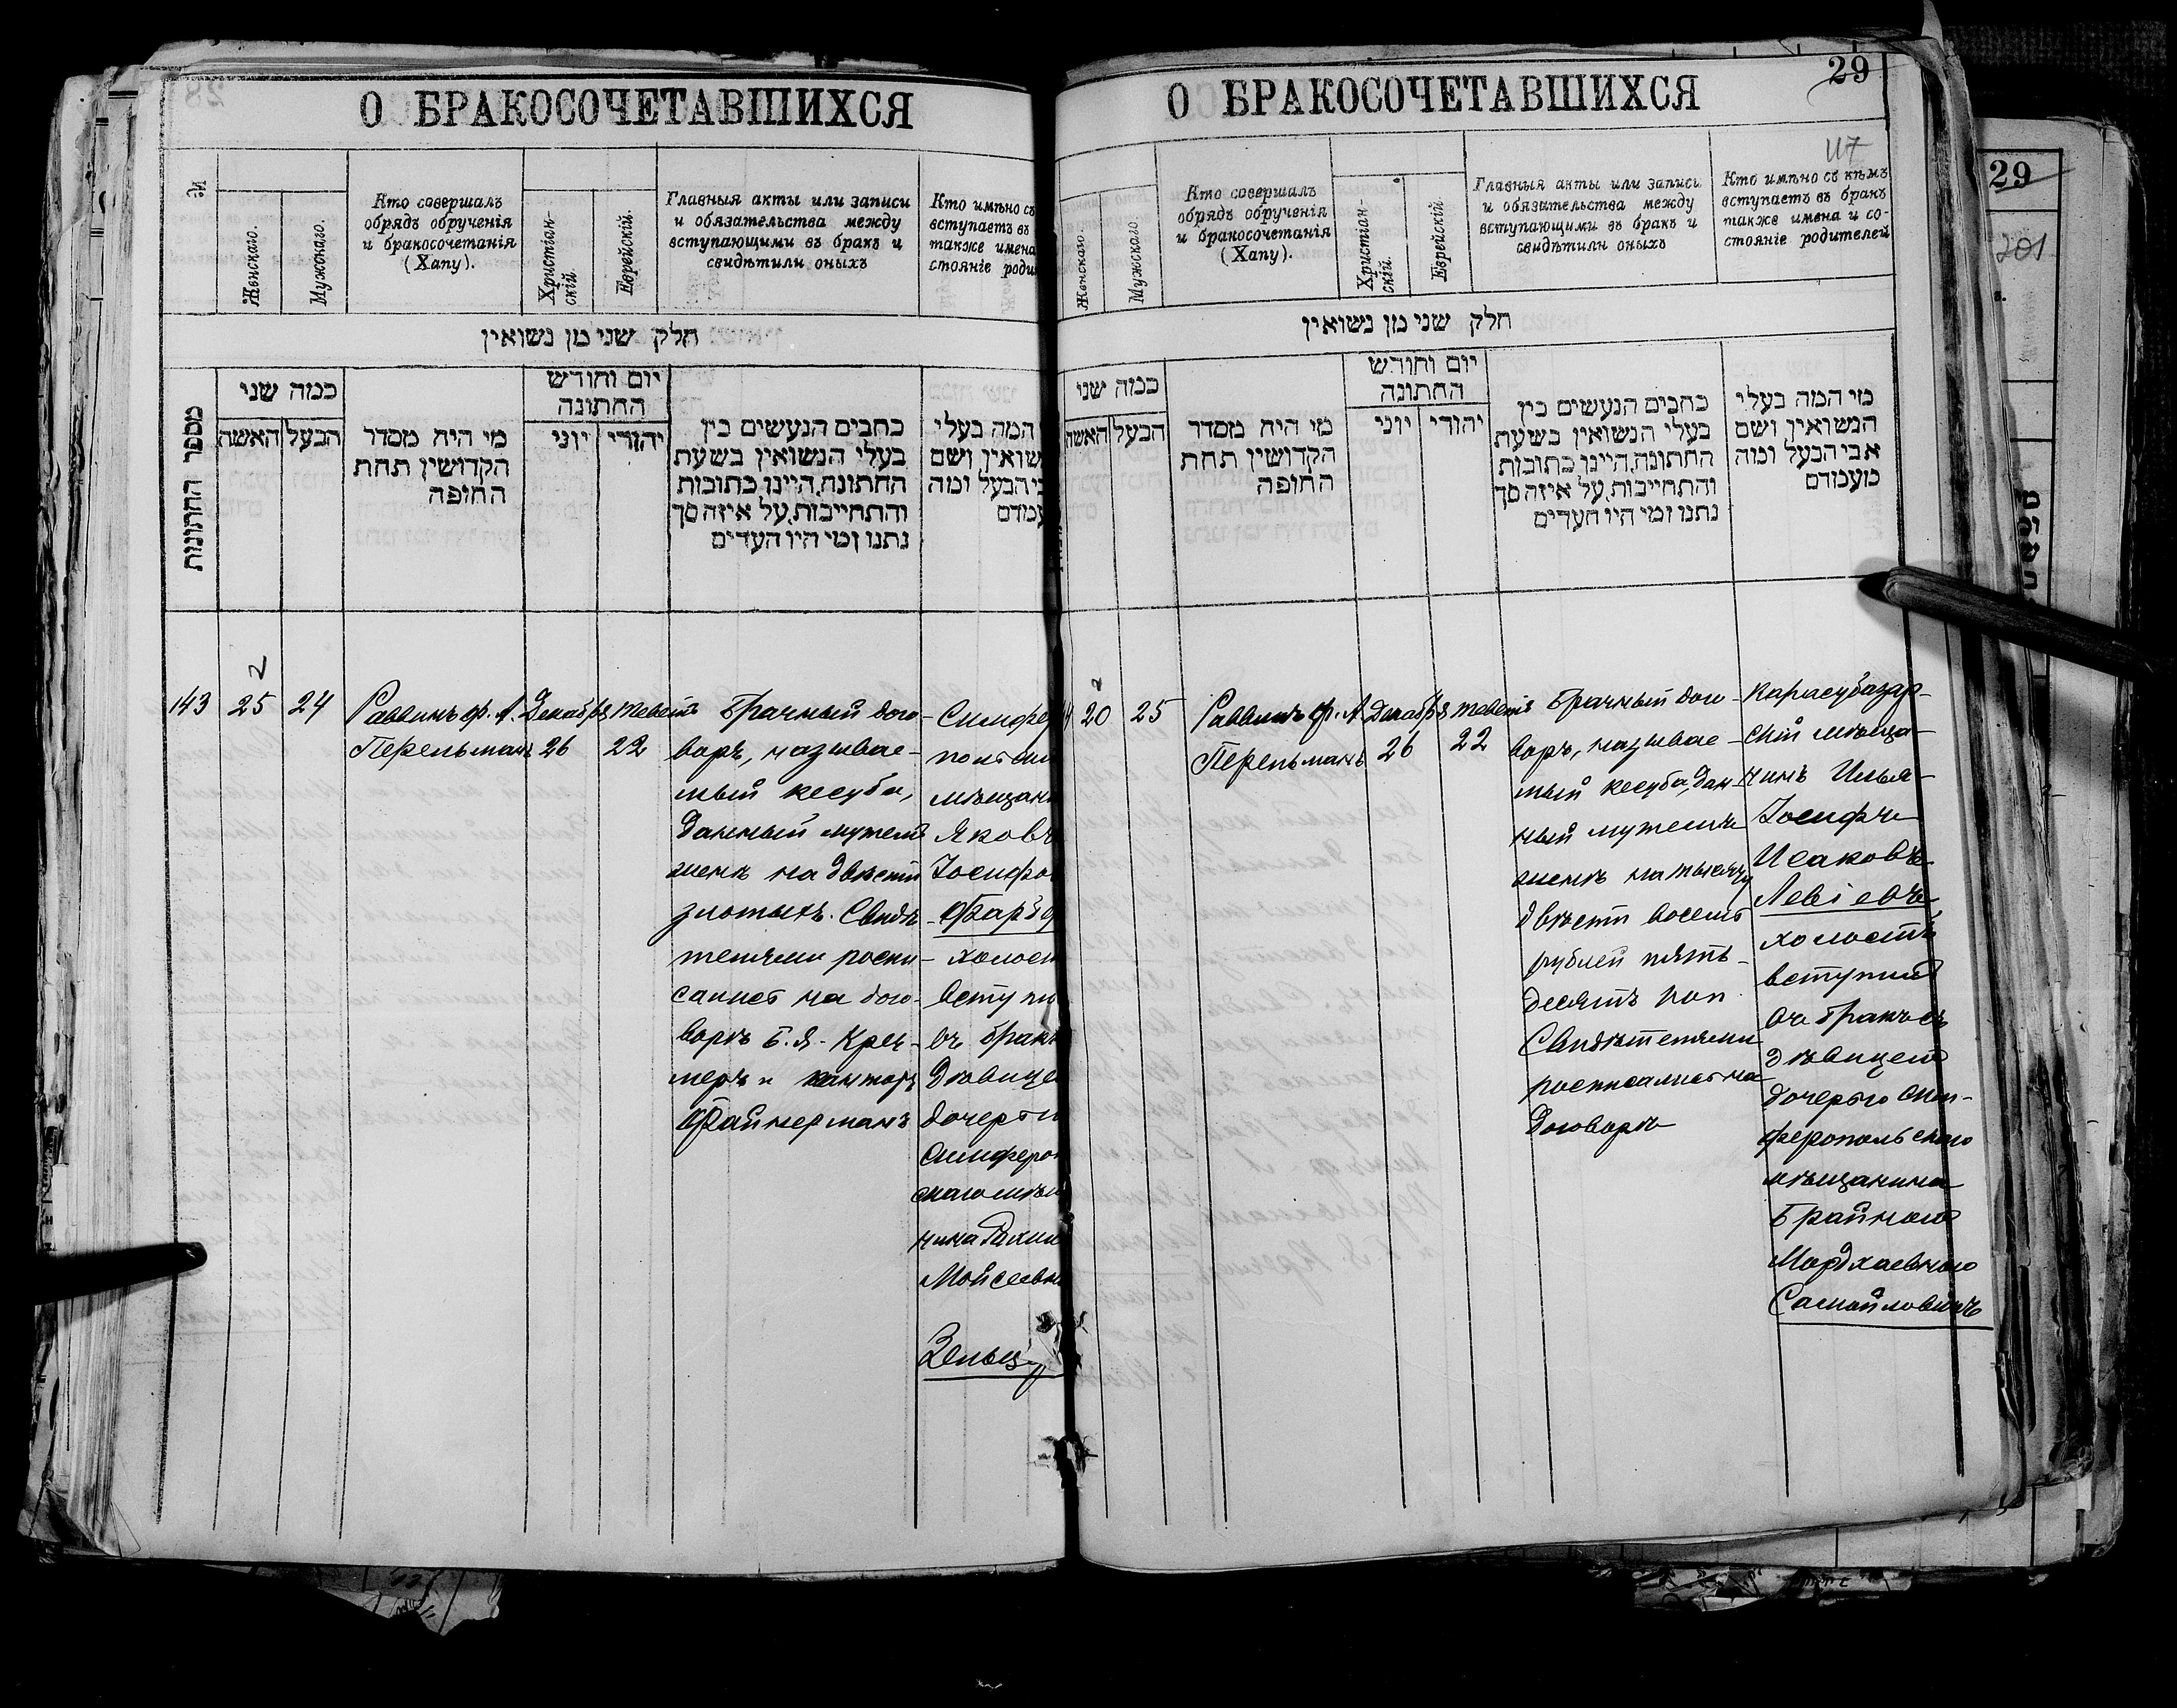 О БРАКОСОЧЕТАВШИХСЯ
№
Женскаго.
Мужскаго.
Кто совершалъ
обрядъ обрученія
и бракосочетанія
(Хапу).
Христіан-
скій.
Еврейскій.
Главныя акты или записи
и обязательства между
вступающими въ бракъ и
свидѣтили оныхъ
Кто имѣно съ
вступаетъ въ
также имена
стояніе роди
חלק שני מן נשואין
מספר החתונות
כמה שני
האשה
הבעל
מי היה מסדר
הקדושין תחת
החופה
יום וחודש
החתונה
יוני
יהודי
כתבים הנעשים בין
בעלי הנשואין בשעת
החתונה, היינו כתובות
והתחייבות, על איזה סך
נתנו ומי היו העדים
המה בעלי
שואין ושם
בי הבעל ומה
עמדם
143
25
24
Раввинъ ф. А.
Перельманъ
Декабрь
26
Теветъ
22
Брачный дого-
воръ, называе-
мый кесуба,
данный мужемъ
женѣ на двѣсти
злотыхъ. Свидѣ-
телями роспи-
сались на дого-
ворѣ Б. Я. Крей-
меръ и канторъ
Файнерманъ
Симфе
польски
мѣщан
Яковъ
Іосифо
холост
вступи
въ бракъ
дѣвице
дочерью
Симферо
скаго мѣщ
нина
Моисеевн
Зельц
О БРАКОСОЧЕТАВШИХСЯ
29
117
Женскаго.
Мужскаго.
Кто совершалъ
обрядъ обрученія
и бракосочетанія
(Хапу).
Христіан-
скій.
Еврейскій.
Главныя акты или записи
и обязательства между
вступающими въ бракъ и
свидѣтили оныхъ
Кто имѣно съ кѣмъ
вступаетъ въ бракъ
также имена и со-
стояніе родителей
חלק שני מן נשואין
כמה שני
האשה
הבעל
מי היה מסדר
הקדושין תחת
החופה
יום וחודש
החתונה
יוני
יהודי
כתבים הנעשים בין
בעלי הנשואין בשעת
החתונה, היינו כתובות
והתחייבות, על איזה סך
נתנו ומי היו העדים
מי המה בעלי
הנשואין ושם
אבי הבעל ומה
מעמדם
20
25
Раввинъ ф. А.
Перельманъ
Декабрь
26
Теветъ
22
Брачный дого-
воръ, называе-
мый кесуба, дан-
ный мужемъ
женѣ на тысячу
двѣсти восемь
рублей пять-
десятъ коп.
Свидѣтелями
росписались на
договорѣ
Карасубазар-
скій мѣща-
нинъ Илья-
Іосифъ
Исаковъ
Левіевъ,
холостъ
вступилъ
въ бракъ съ
дѣвицею
дочерью Сим-
феропольскаго
мѣщанина
Брайною
Мордхаевною
Самойловичъ
29
201